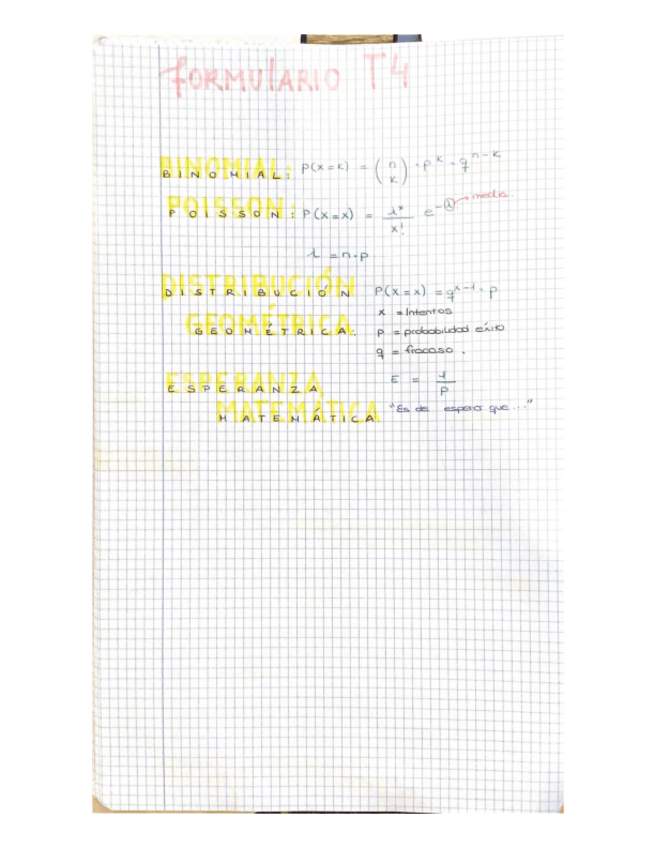 FORMULARIO T4
BINOMIAL: P(x=k) = (n k) · p^k · q^n-k
POISSON: P(x=x) = λ^x / x! e^-λ → media.
λ = n·p
DISTRIBUCIÓN P(x=x) = q^x-1 · p
x = Intentos
GEOMÉTRICA: p = probabilidad éxito
q = fracaso.
ESPERANZA E = 1/p
MATEMÁTICA "Es de esperar que..."